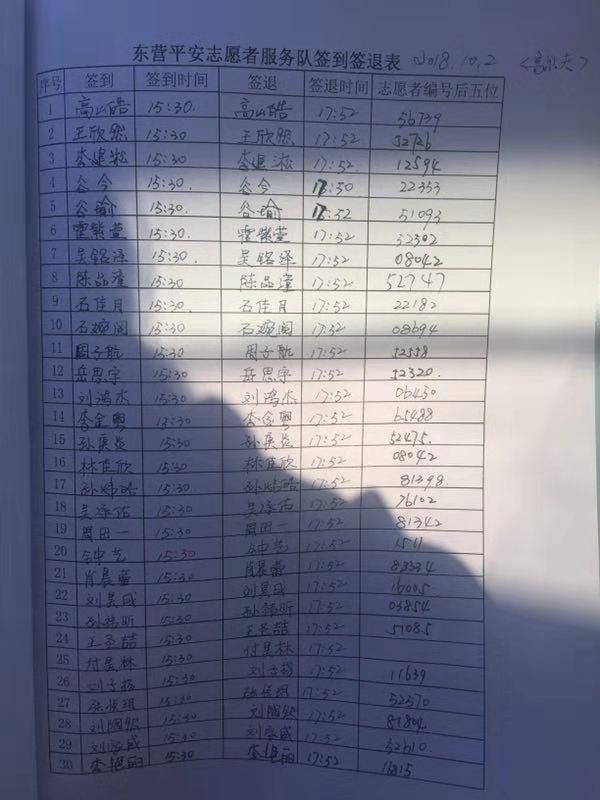 东营平安志愿者服务队签到签退表 2018.10.2
序号 签到 签到时间 签退 签退时间 志愿者编号后五位
1 高山皓 15:30. 高山皓 17:52 56739
2 王欣然 15:30 王欣然 17:52 52726
3 李建淞 15:30 李建淞 17:52 12594
4 谷今 15:30. 谷今 22353
5 谷瑜 15:30. 谷瑜 51093
6 霍紫萱 15:30. 霍紫萱 17:52 52302
7 吴铭泽 15:30. 吴铭泽 17:52 08042
8 陈品潼 15:30 陈品潼 17:52 52747
9 石佳月 15:30. 石佳月 17:52 22182
10 石婉阁 15:30 石婉阁 17:52 08694
11 周子航 15:30 周子航 17:52 52558
12 岳思宇 15:30. 岳思宇 17:52 52320.
13 刘鸿杰 15:30 刘鸿杰 17:52 06450
14 李金粤 15:30 李金粤 17:52 65488
15 孙奥炎 15:30 孙奥炎 17:52 52475.
16 林佳欣 15:30 林佳欣 17:52 08042
17 15:30 17:52 81398.
18 15:30 17:52 76102
19 周田一 15:30 周田一 17:52 81342
20 15:30 17:52 1511
21 肖晨萱 15:30 肖晨萱 17:52 83334
22 刘昊成 15:30 刘昊成 17:52 16005
23 15:30 17:52 03854
24 王圣喆 15:30 王圣喆 17:52 51085
25 付昊林 15:30 付昊林 17:52
26 刘子扬 15:30 刘子扬 17:52 11639
27 15:30 17:52 52570
28 刘陶然 15:30 刘陶然 17:52 81804.
29 15:30 17:52 52610.
30 李艳丽 15:30 李艳丽 17:52